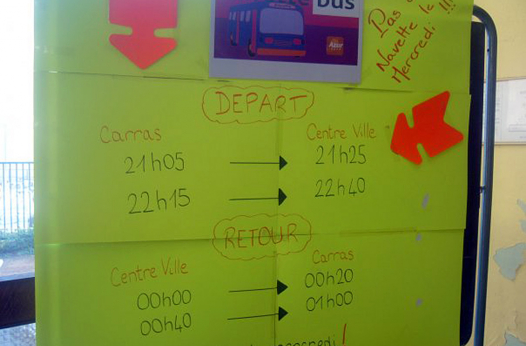 Bus
Pas
Navette le !!!
Mercredi
DEPART
Carras
Centre Ville
21h05
21h25
22h15
22h40
RETOUR
Centre Ville
Carras
00h00
00h20
00h40
01h00